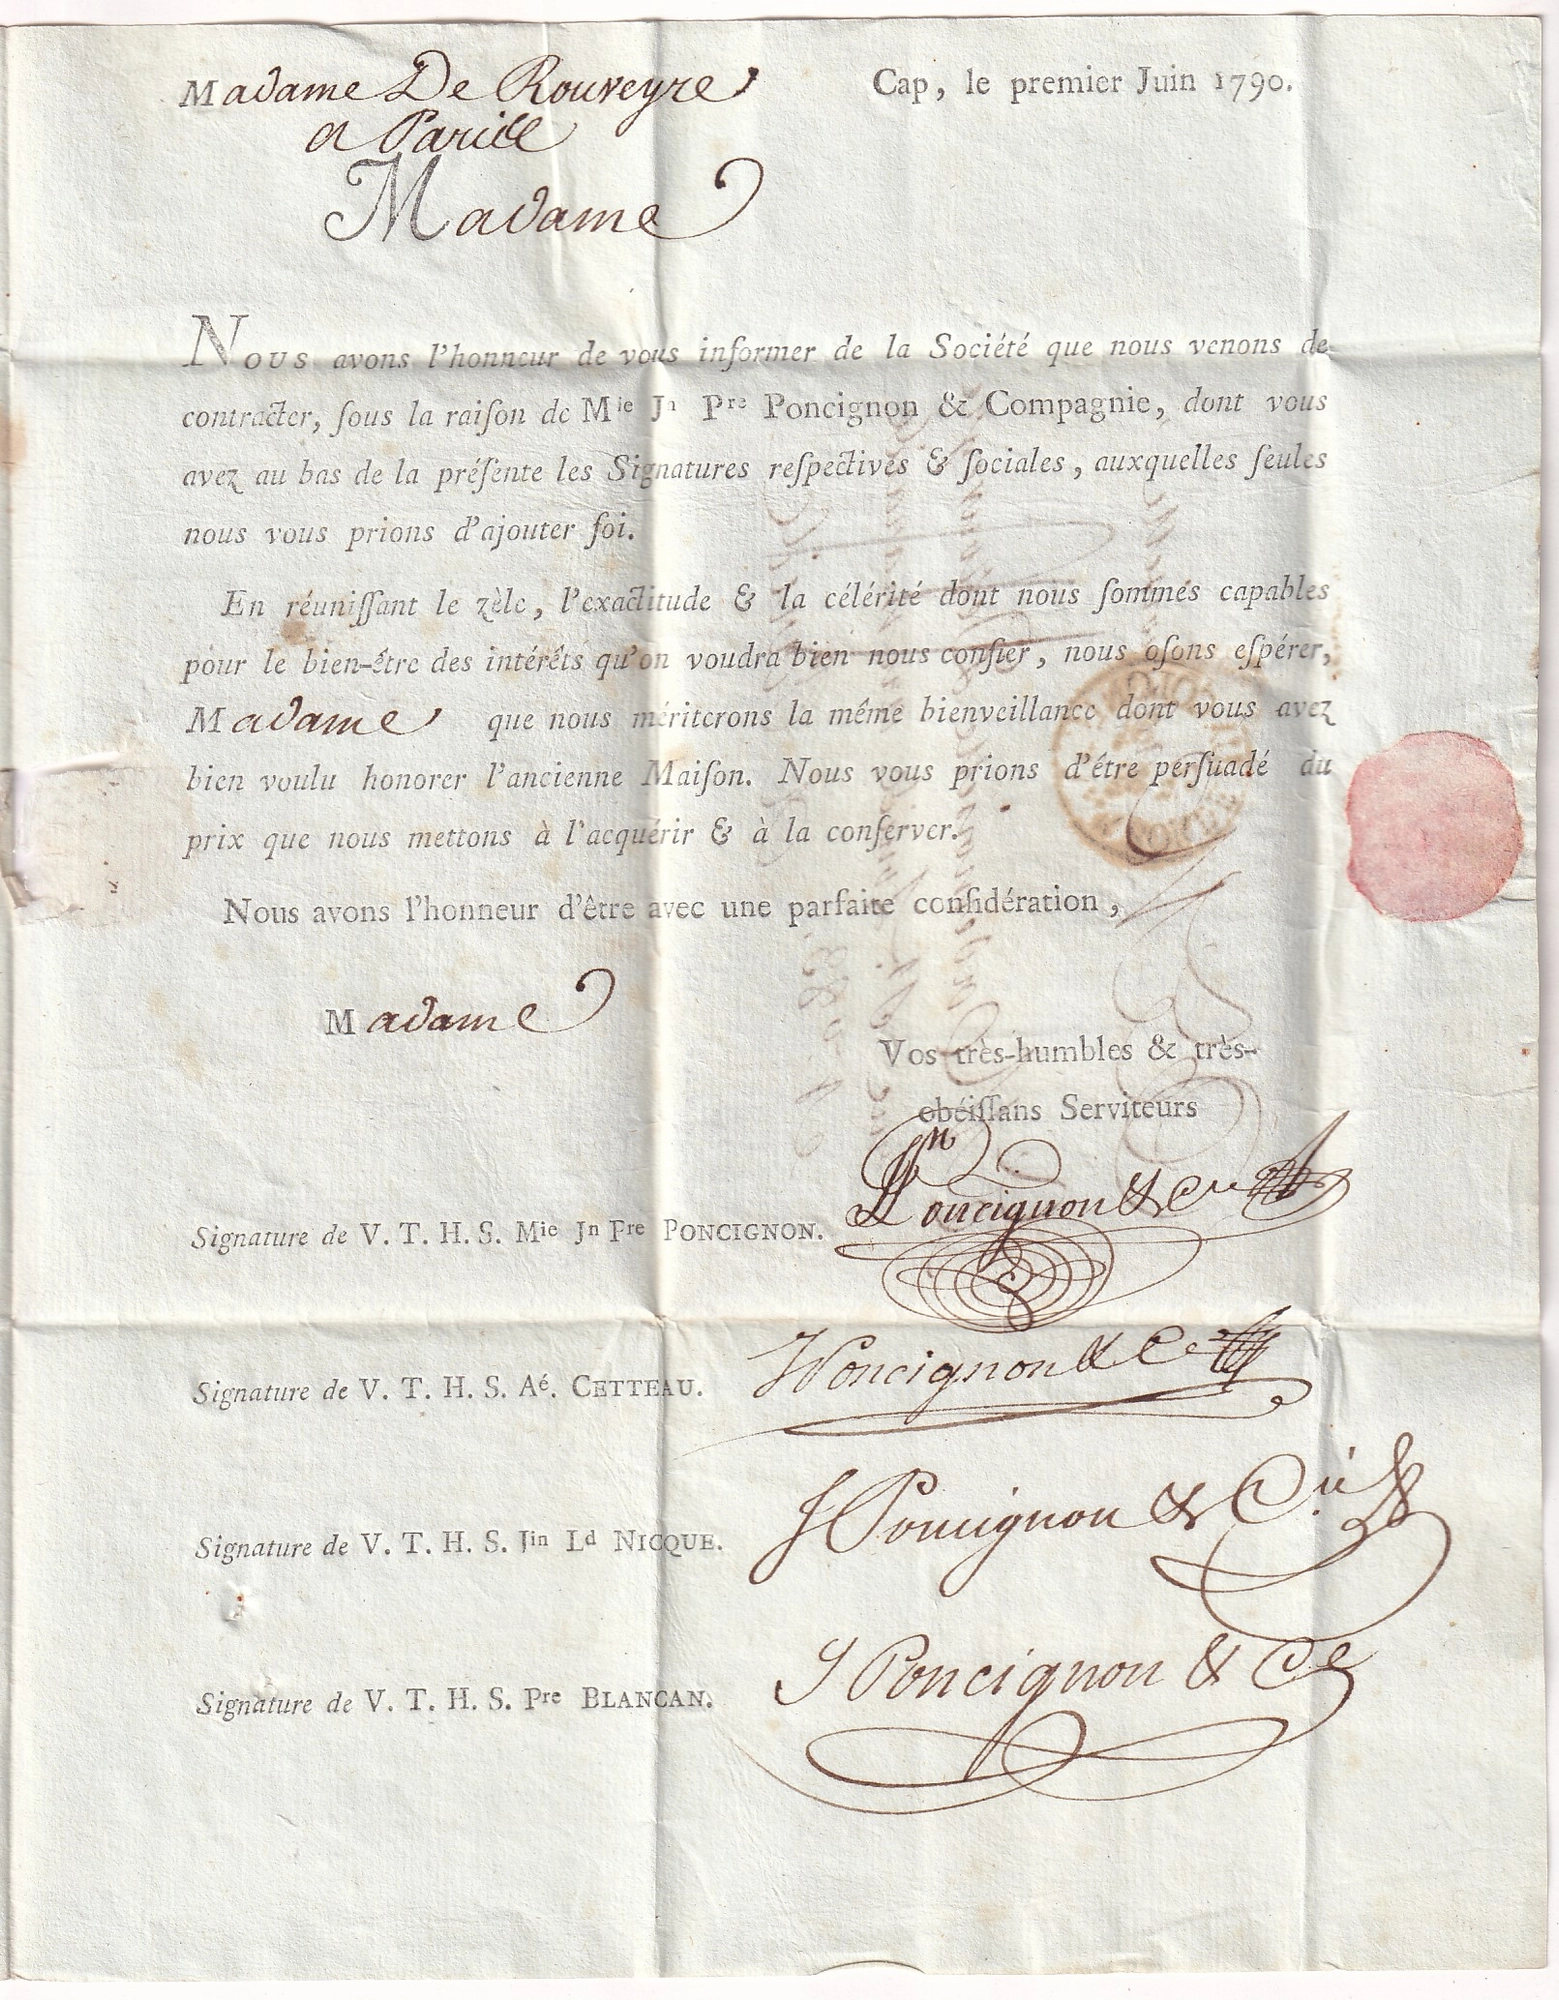 Madame De Rouveyre
a Paris
Cap, le premier Juin 1790.
Madame
Nous avons l'honneur de vous informer de la Société que nous venons de
contracter, ſous la raiſon de Mie Jn Pre Poncignon & Compagnie, dont vous
avez au bas de la préſente les Signatures reſpectives & ſociales, auxquelles ſeules
nous vous prions d'ajouter foi.
En réuniſſant le zèle, l'exactitude & la célérité dont nous ſommes capables
pour le bien-être des intérêts qu'on voudra bien nous confier, nous oſons eſpérer,
Madame que nous mériterons la même bienveillance dont vous avez
bien voulu honorer l'ancienne Maiſon. Nous vous prions d'être perſuadé du
prix que nous mettons à l'acquérir & à la conſerver.
Nous avons l'honneur d'être avec une parfaite conſidération,
Madame
Vos très-humbles & très-
obéiſſans Serviteurs
Signature de V. T. H. S. Mie Jn Pre PONCIGNON. Poncignon & Cie
Signature de V. T. H. S. Aé. CETTEAU. Poncignon & Ce
Signature de V. T. H. S. Jin Ld NICQUE. Poncignon & Cie
Signature de V. T. H. S. Pre BLANCAN. Poncignon & Ce